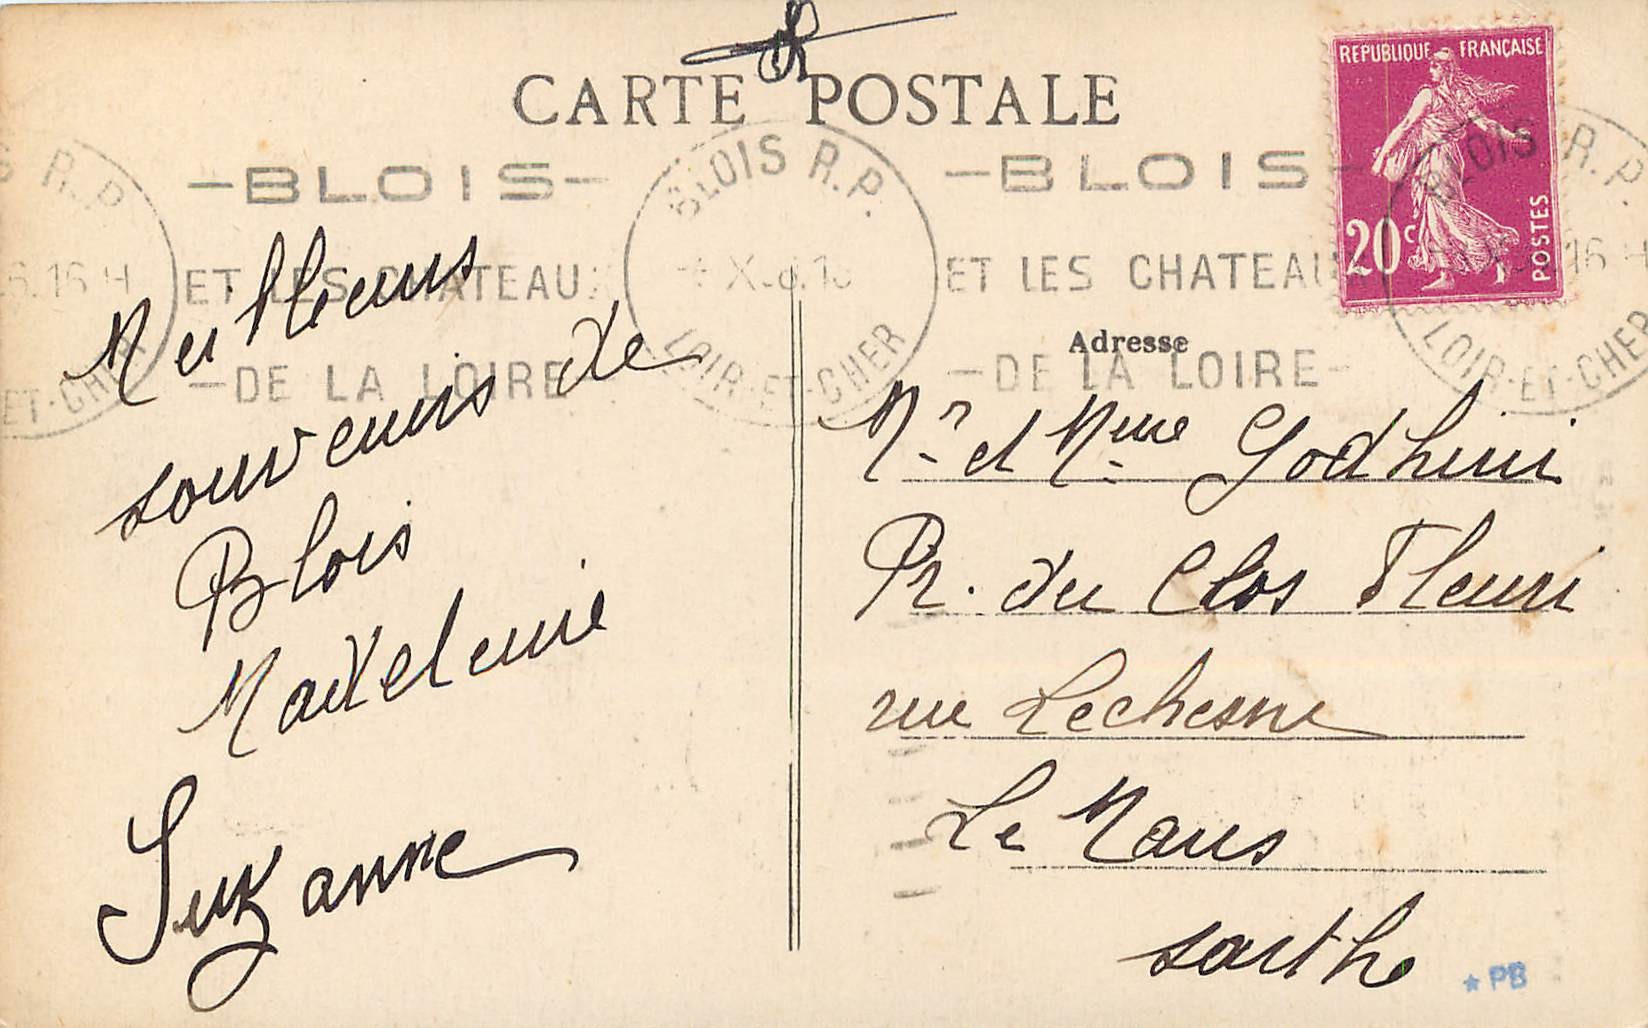 CARTE POSTALE
REPUBLIQUE FRANÇAISE
20c
POSTES
S R.P.
16 H
ET-CHER
-BLOIS-
ET LES CHATEAUX
-DE LA LOIRE
BLOIS R.P.
LOIR-ET-CHER
-BLOIS-
ET LES CHATEAUX
-DE LA LOIRE-
BLOIS R.P.
16 H
LOIR-ET-CHER
Meilleurs
souvenirs de
Blois
Madeleine
Suzanne
Adresse
Mr et Mme
Pr. du Clos Fleuri
rue Lechesne
Le Mans
Sarthe
* PB